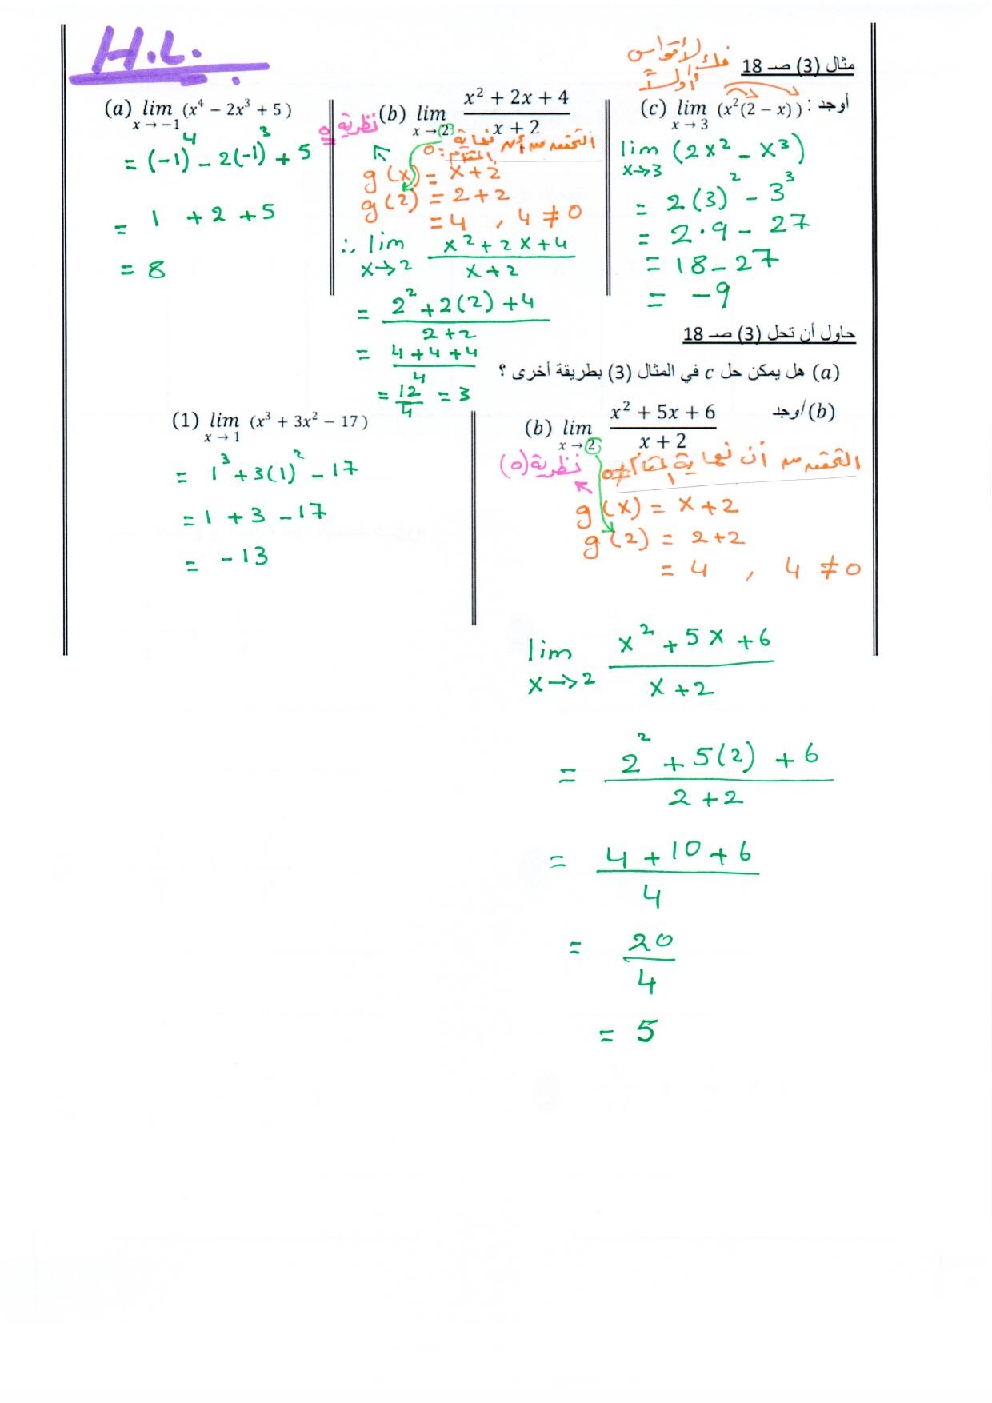 H.L.
مثال (3) صـ 18
فك الأقواس
أولاً
أوجد :
(a) lim x→−1 (x⁴ − 2x³ + 5)
= (-1)⁴ - 2(-1)³ + 5
= 1 + 2 + 5
= 8
(b) lim x→2 (x² + 2x + 4)/(x + 2)
نظرية 5
التحقق من أن نهاية المقام ≠ 0
g(x) = x+2
g(2) = 2+2
= 4 , 4 ≠ 0
∴ lim x→2 (x²+2x+4)/(x+2)
= (2²+2(2)+4)/(2+2)
= (4+4+4)/4
= 12/4 = 3
(c) lim x→3 (x²(2 − x))
lim x→3 (2x² - x³)
= 2(3)² - 3³
= 2·9 - 27
= 18-27
= -9
حاول أن تحل (3) صـ 18
(a) هل يمكن حل c في المثال (3) بطريقة أخرى ؟
(b) أوجد
(1) lim x→1 (x³ + 3x² − 17)
= 1³+3(1)² - 17
= 1 + 3 - 17
= -13
(b) lim x→2 (x² + 5x + 6)/(x + 2)
التحقق من أن نهاية المقام ≠ 0 نظرية (5)
g(x) = x+2
g(2) = 2+2
= 4 , 4 ≠ 0
lim x→2 (x²+5x+6)/(x+2)
= (2²+5(2)+6)/(2+2)
= (4+10+6)/4
= 20/4
= 5